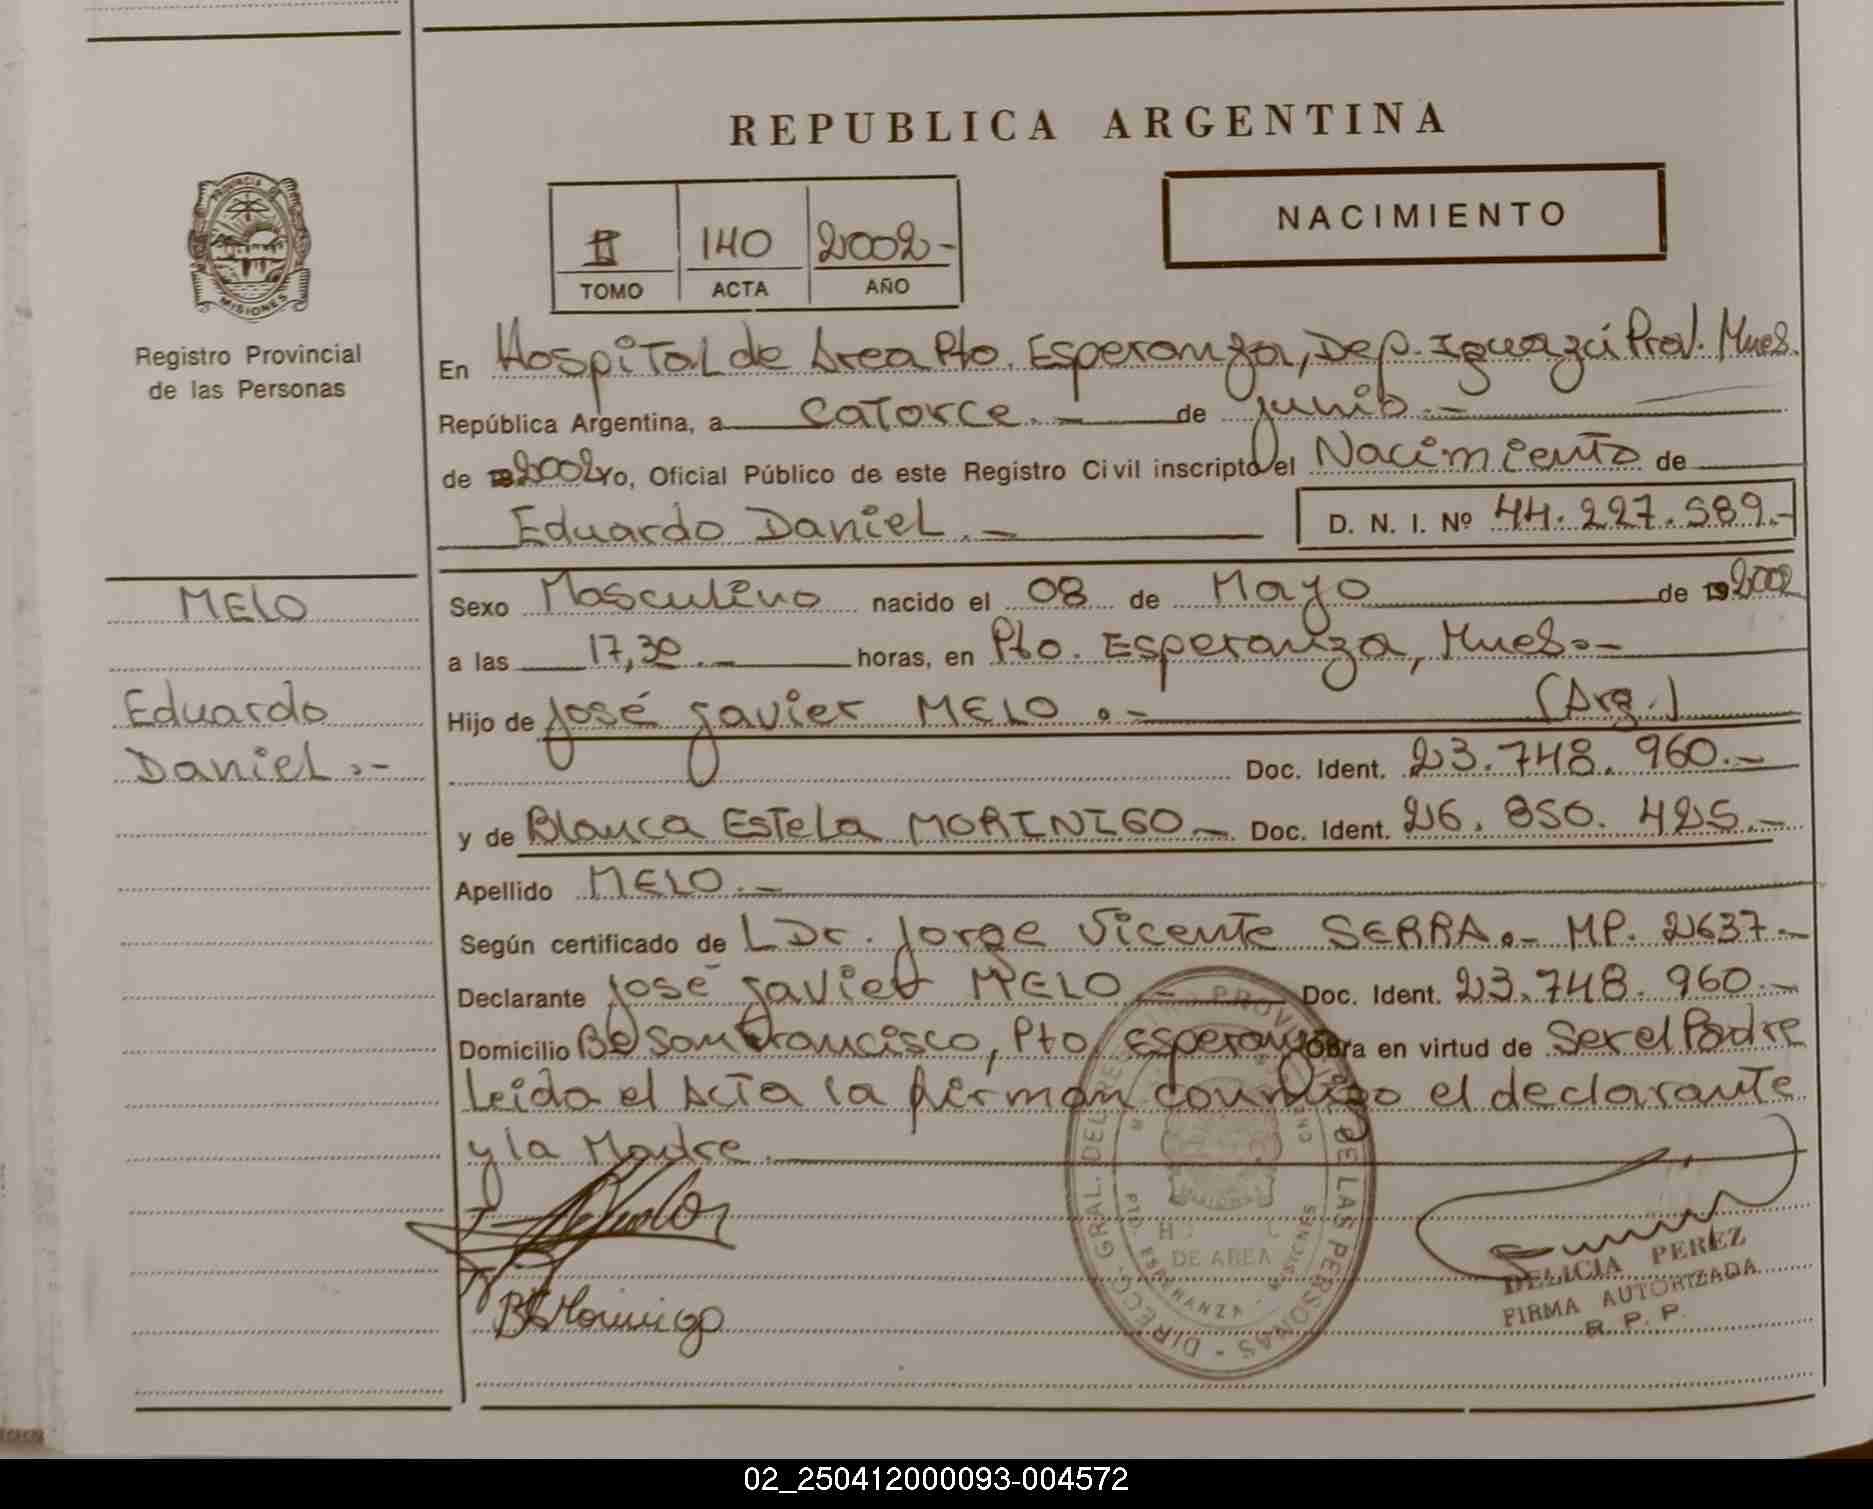 REPUBLICA ARGENTINA
NACIMIENTO
II 140 2002-
TOMO ACTA AÑO
PROVINCIA DE
MISIONES
Registro Provincial
de las Personas
En Hospital de Area Pto. Esperanza, Dep. Iguazú Prov. Mnes.
República Argentina, a catorce.- de junio.-
de 2002 yo, Oficial Público de este Registro Civil inscripto el Nacimiento de
Eduardo Daniel.- D. N. I. Nº 44.227.589.-
MELO
Eduardo
Daniel.-
Sexo Masculino nacido el 08 de Mayo de 192002
a las 17,30.- horas, en Pto. Esperanza, Mnes.-
Hijo de José Javier MELO.- (Arg.)
Doc. Ident. 23.748.960.-
y de Blanca Estela MORINIGO- Doc. Ident. 26.850.425.-
Apellido MELO.-
Según certificado de Dr. Jorge Vicente SERRA.- MP. 2637.-
Declarante José Javier MELO- Doc. Ident. 23.748.960.-
Domicilio Bº San Francisco, Pto Esperanza Obra en virtud de Ser el Padre
Leida el Acta la firman conmigo el declarante
y la Madre.
BEMorinigo
DIRECC. GRAL. DEL REGISTRO PROVINCIAL DE LAS PERSONAS
DE AREA
PTO. ESPERANZA - MISIONES
DELICIA PEREZ
FIRMA AUTORIZADA
R. P. P.
02_250412000093-004572